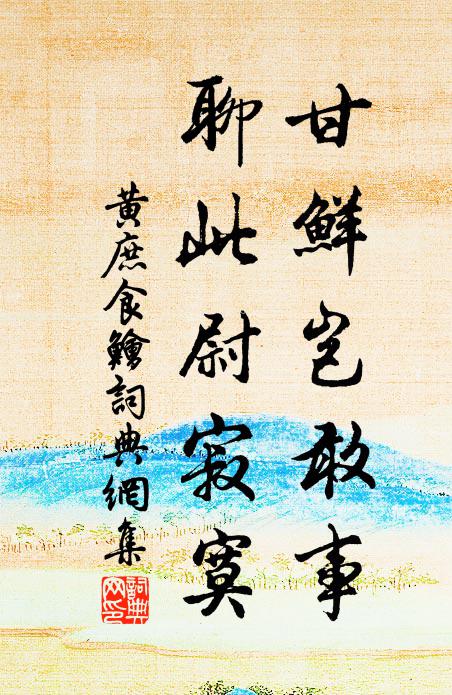 甘鮮豈敢事
聊此尉寂寞
黃庶食鱠詞典網集
詞典